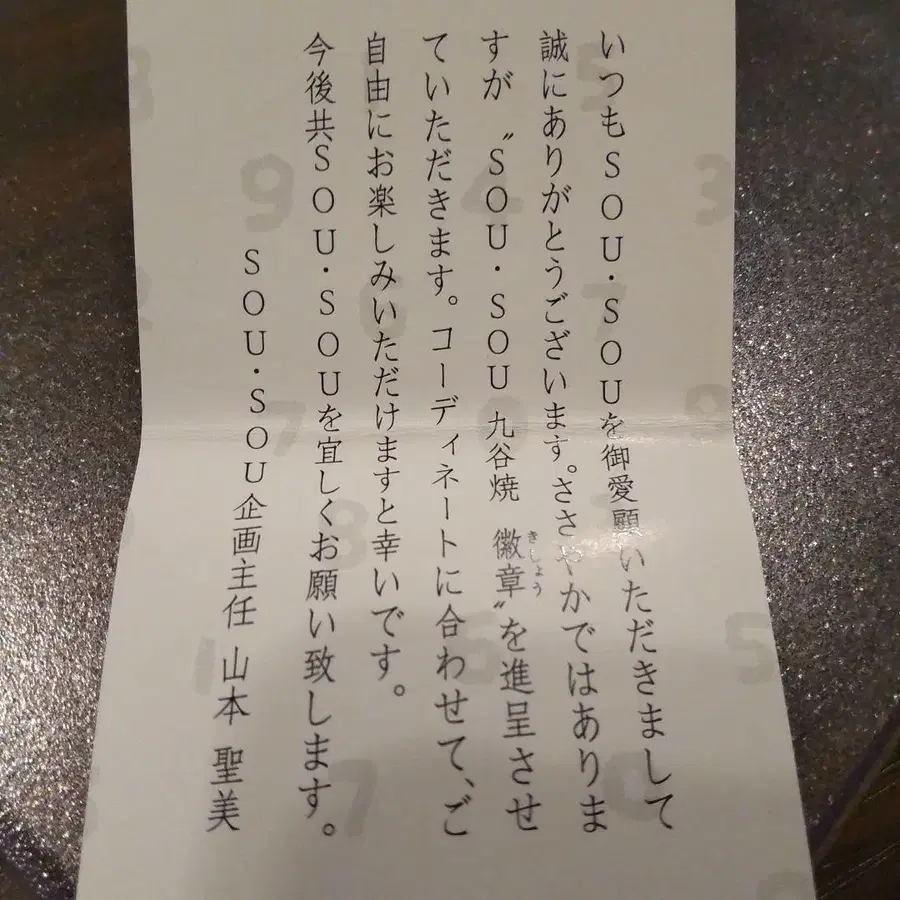 いつもSOU・SOUを御愛顧いただきまして
誠にありがとうございます。ささやかではありま
すが〝SOU・SOU 九谷焼 徽章〟を進呈させ
きしょう
ていただきます。コーディネートに合わせて、ご
自由にお楽しみいただけますと幸いです。
今後共SOU・SOUを宜しくお願い致します。
SOU・SOU企画主任 山本 聖美